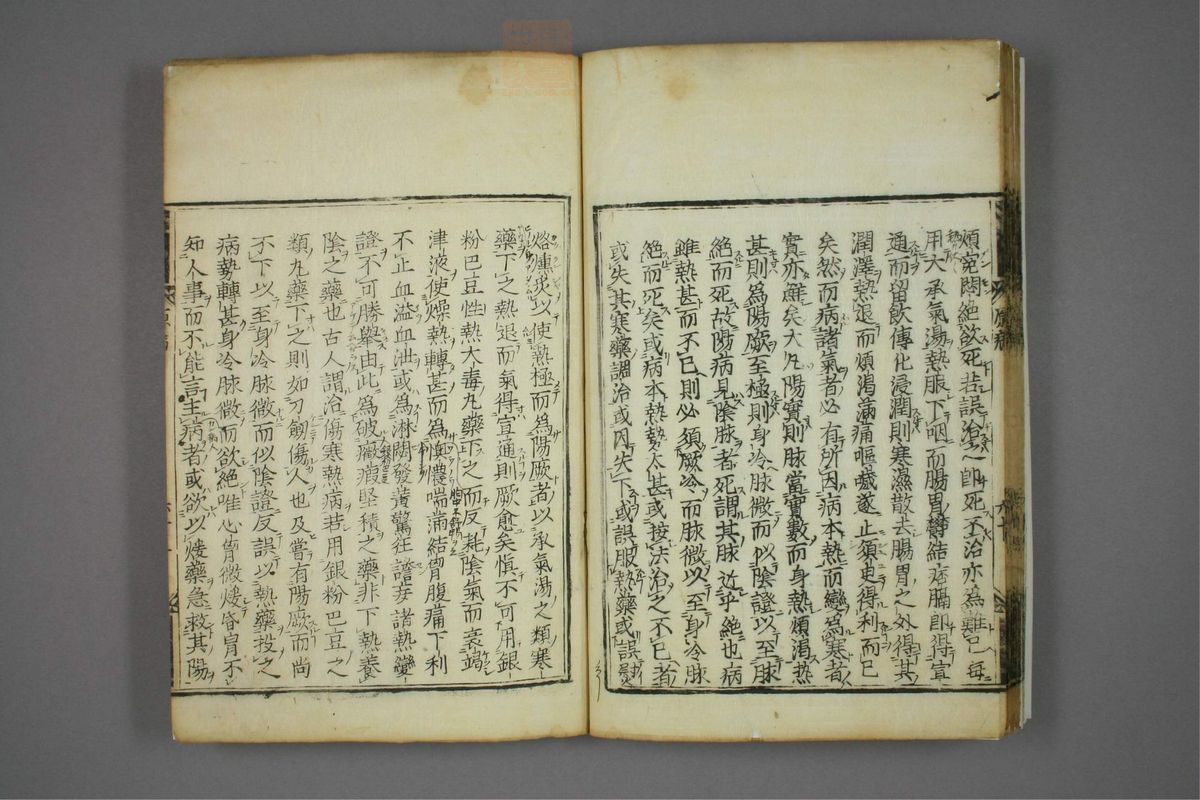 煩冤悶絕欲死若誤治之即死不治亦為難已每
用大承氣湯熱服下咽而腸胃鬱結痞膈即得宣
通而留飲傳化浸潤則寒濕散去腸胃之外得其
潤澤熱退而煩渴滿痛嘔噦遂止須臾得利而已
矣然而病諸氣者必有所因病本熱而變為寒者
實亦鮮矣大凡陽實則脉當實數而身熱煩渴熱
甚則為陽厥至極則身冷脉微而似陰證以至脉
絕而死故陽病見陰脉者死謂其脉近乎絕也病
雖熱甚而不已則必須厥冷而脉微以至身冷脉
絕而死矣或病本熱勢太甚或按法治之不已者
或失其寒藥調治或因失下或誤服熱藥或誤熨
烙熏灸以使熱極而為陽厥者以承氣湯之類寒
藥下之熱退而氣得宣通則厥愈矣慎不可用銀
粉巴豆性熱大毒丸藥下之而反耗陰氣而衰竭
津液使燥熱轉甚而為懊憹喘滿結胷腹痛下利
不止血溢血泄或為淋閟發黃驚狂譫妄諸熱變
證不可勝舉由此為破癥瘕堅積之藥非下熱養
陰之藥也古人謂治傷寒熱病若用銀粉巴豆之
類丸藥下之則如刀劒傷人也及嘗有陽厥而尚
不下以至身冷脉微而似陰證反誤以熱藥投之
病勢轉甚身冷脉微而欲絕唯心胷微煖昏冒不
知人事而不能言主病者或欲以煖藥急救其陽